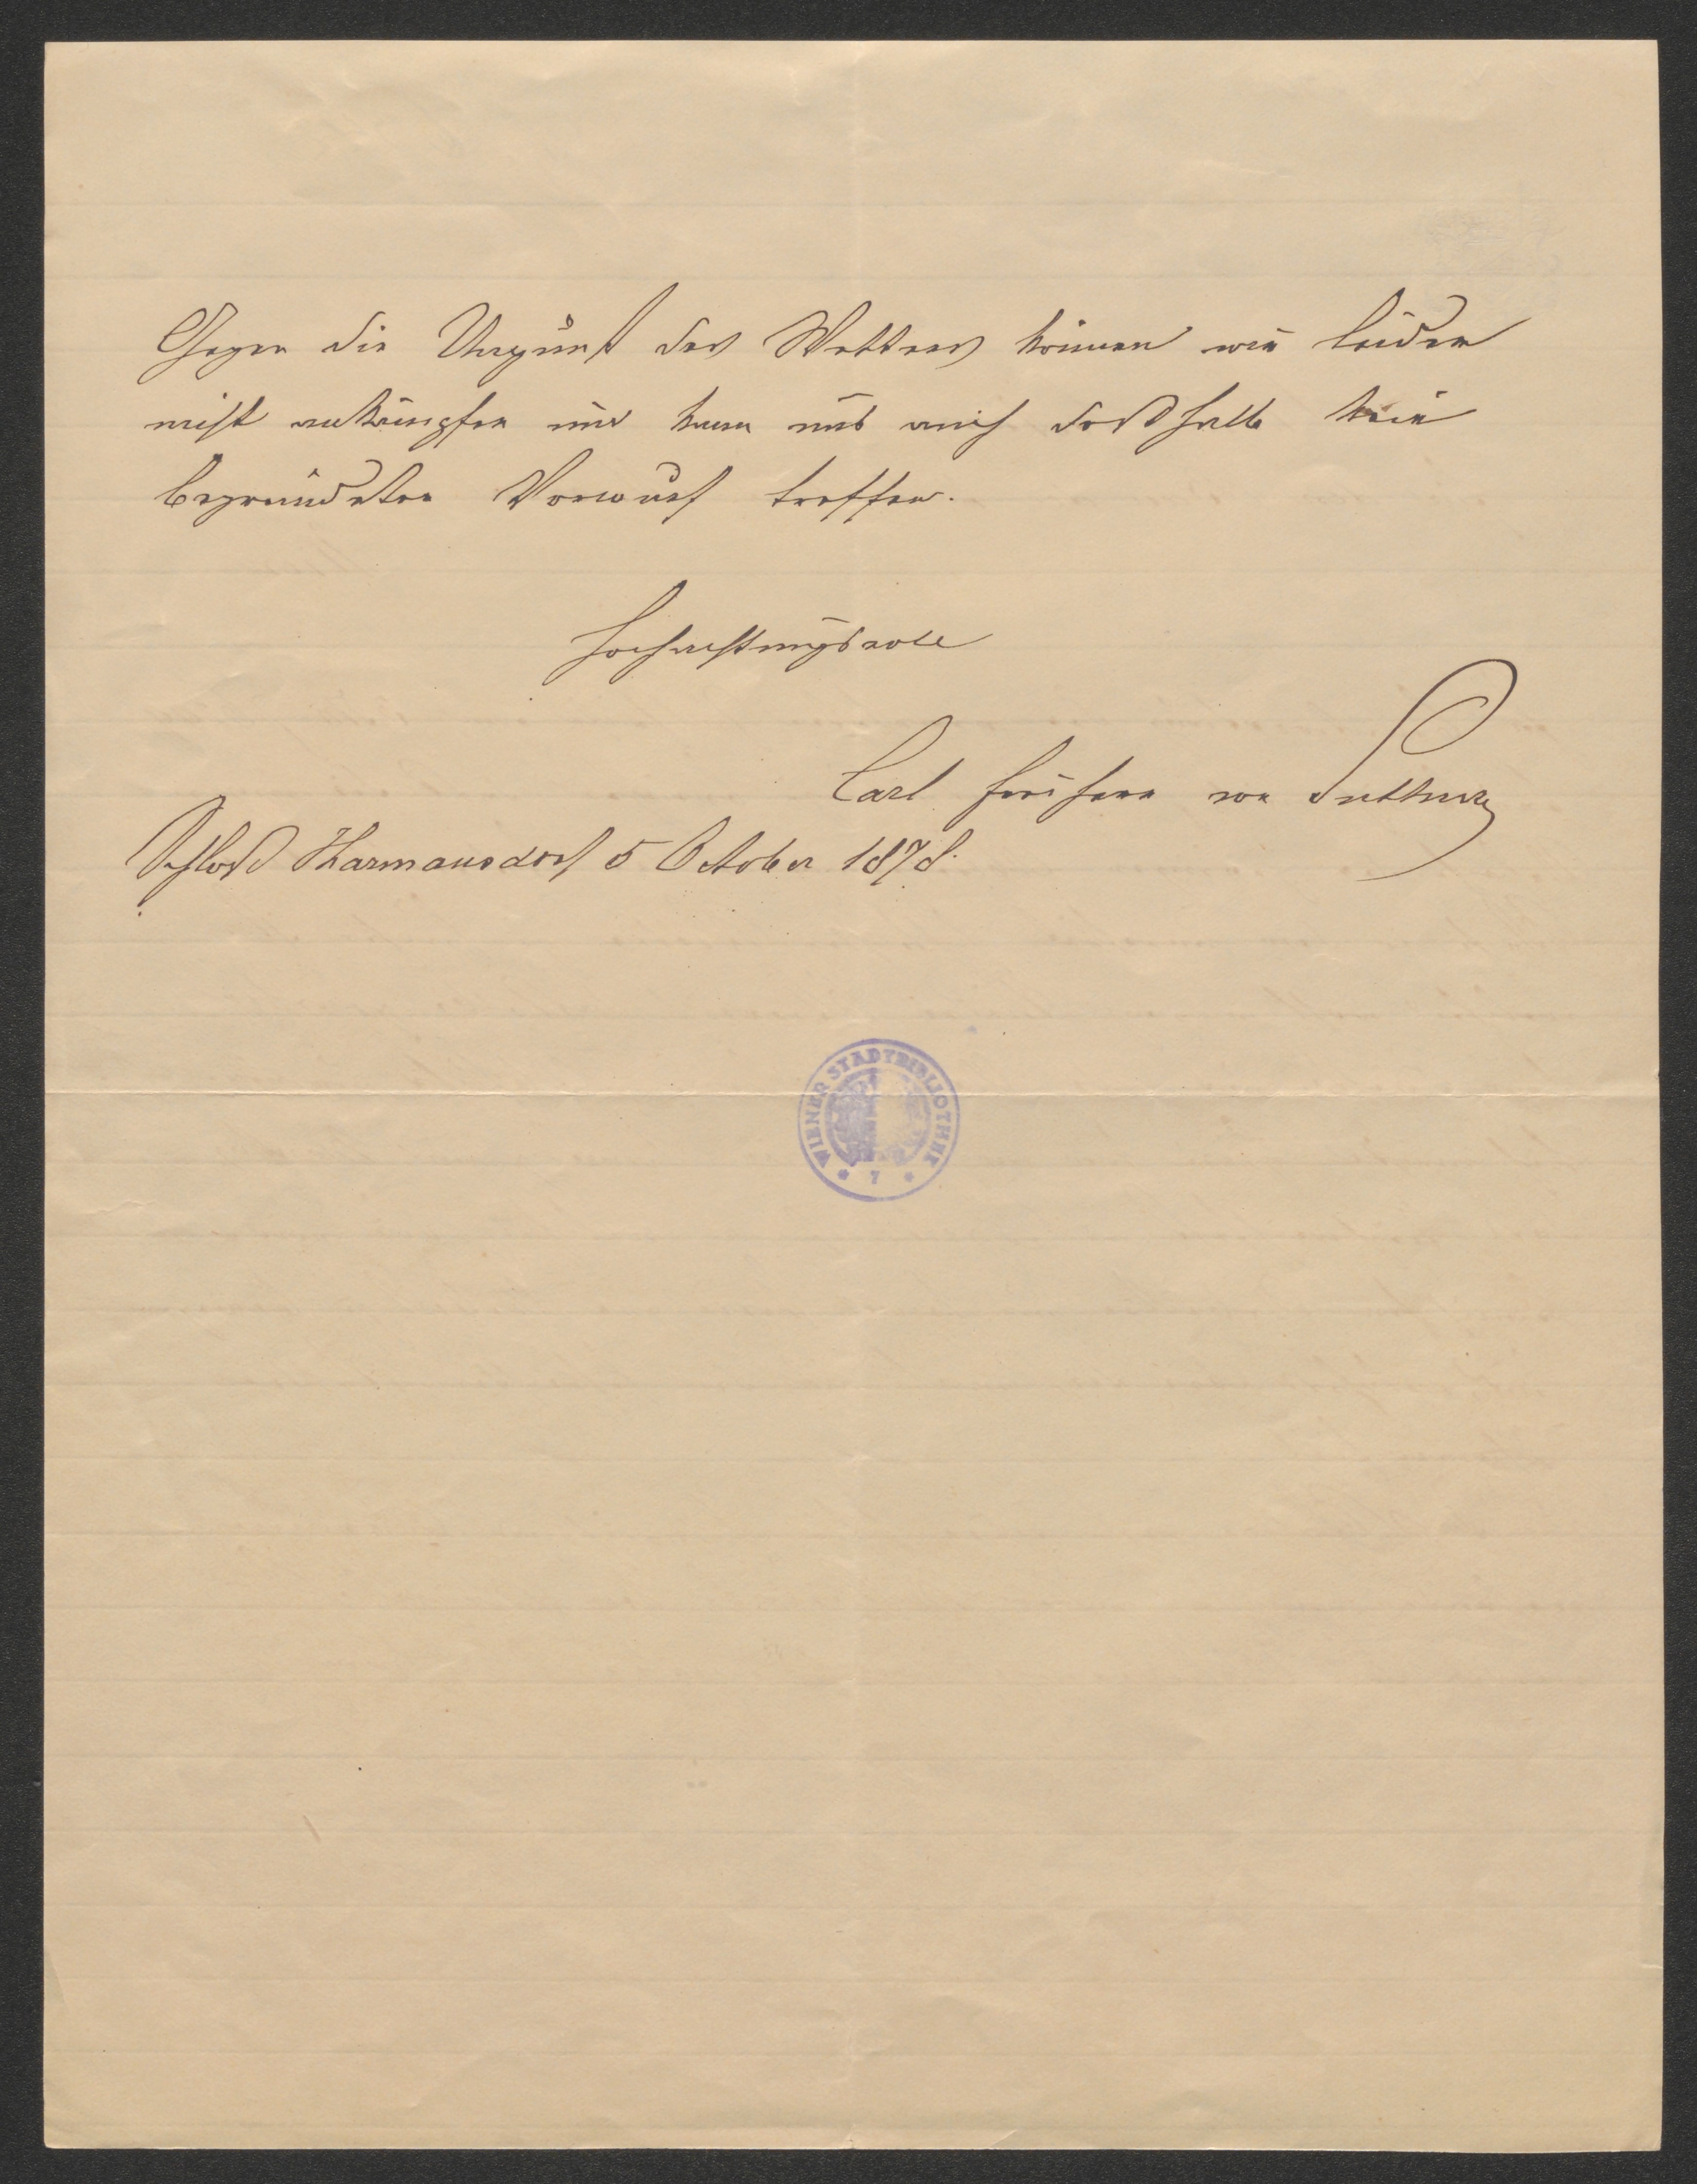 Gegen die Ungunst des Wetters können wir leider
nicht ankämpfen und kann uns auch deßhalb kein
begründeter Vorwurf treffen.
Hochachtungsvoll
Carl Freiherr von Suttner
Schloß Harmansdorf 5 October 1878.
WIENER STADTBIBLIOTHEK
* 7 *